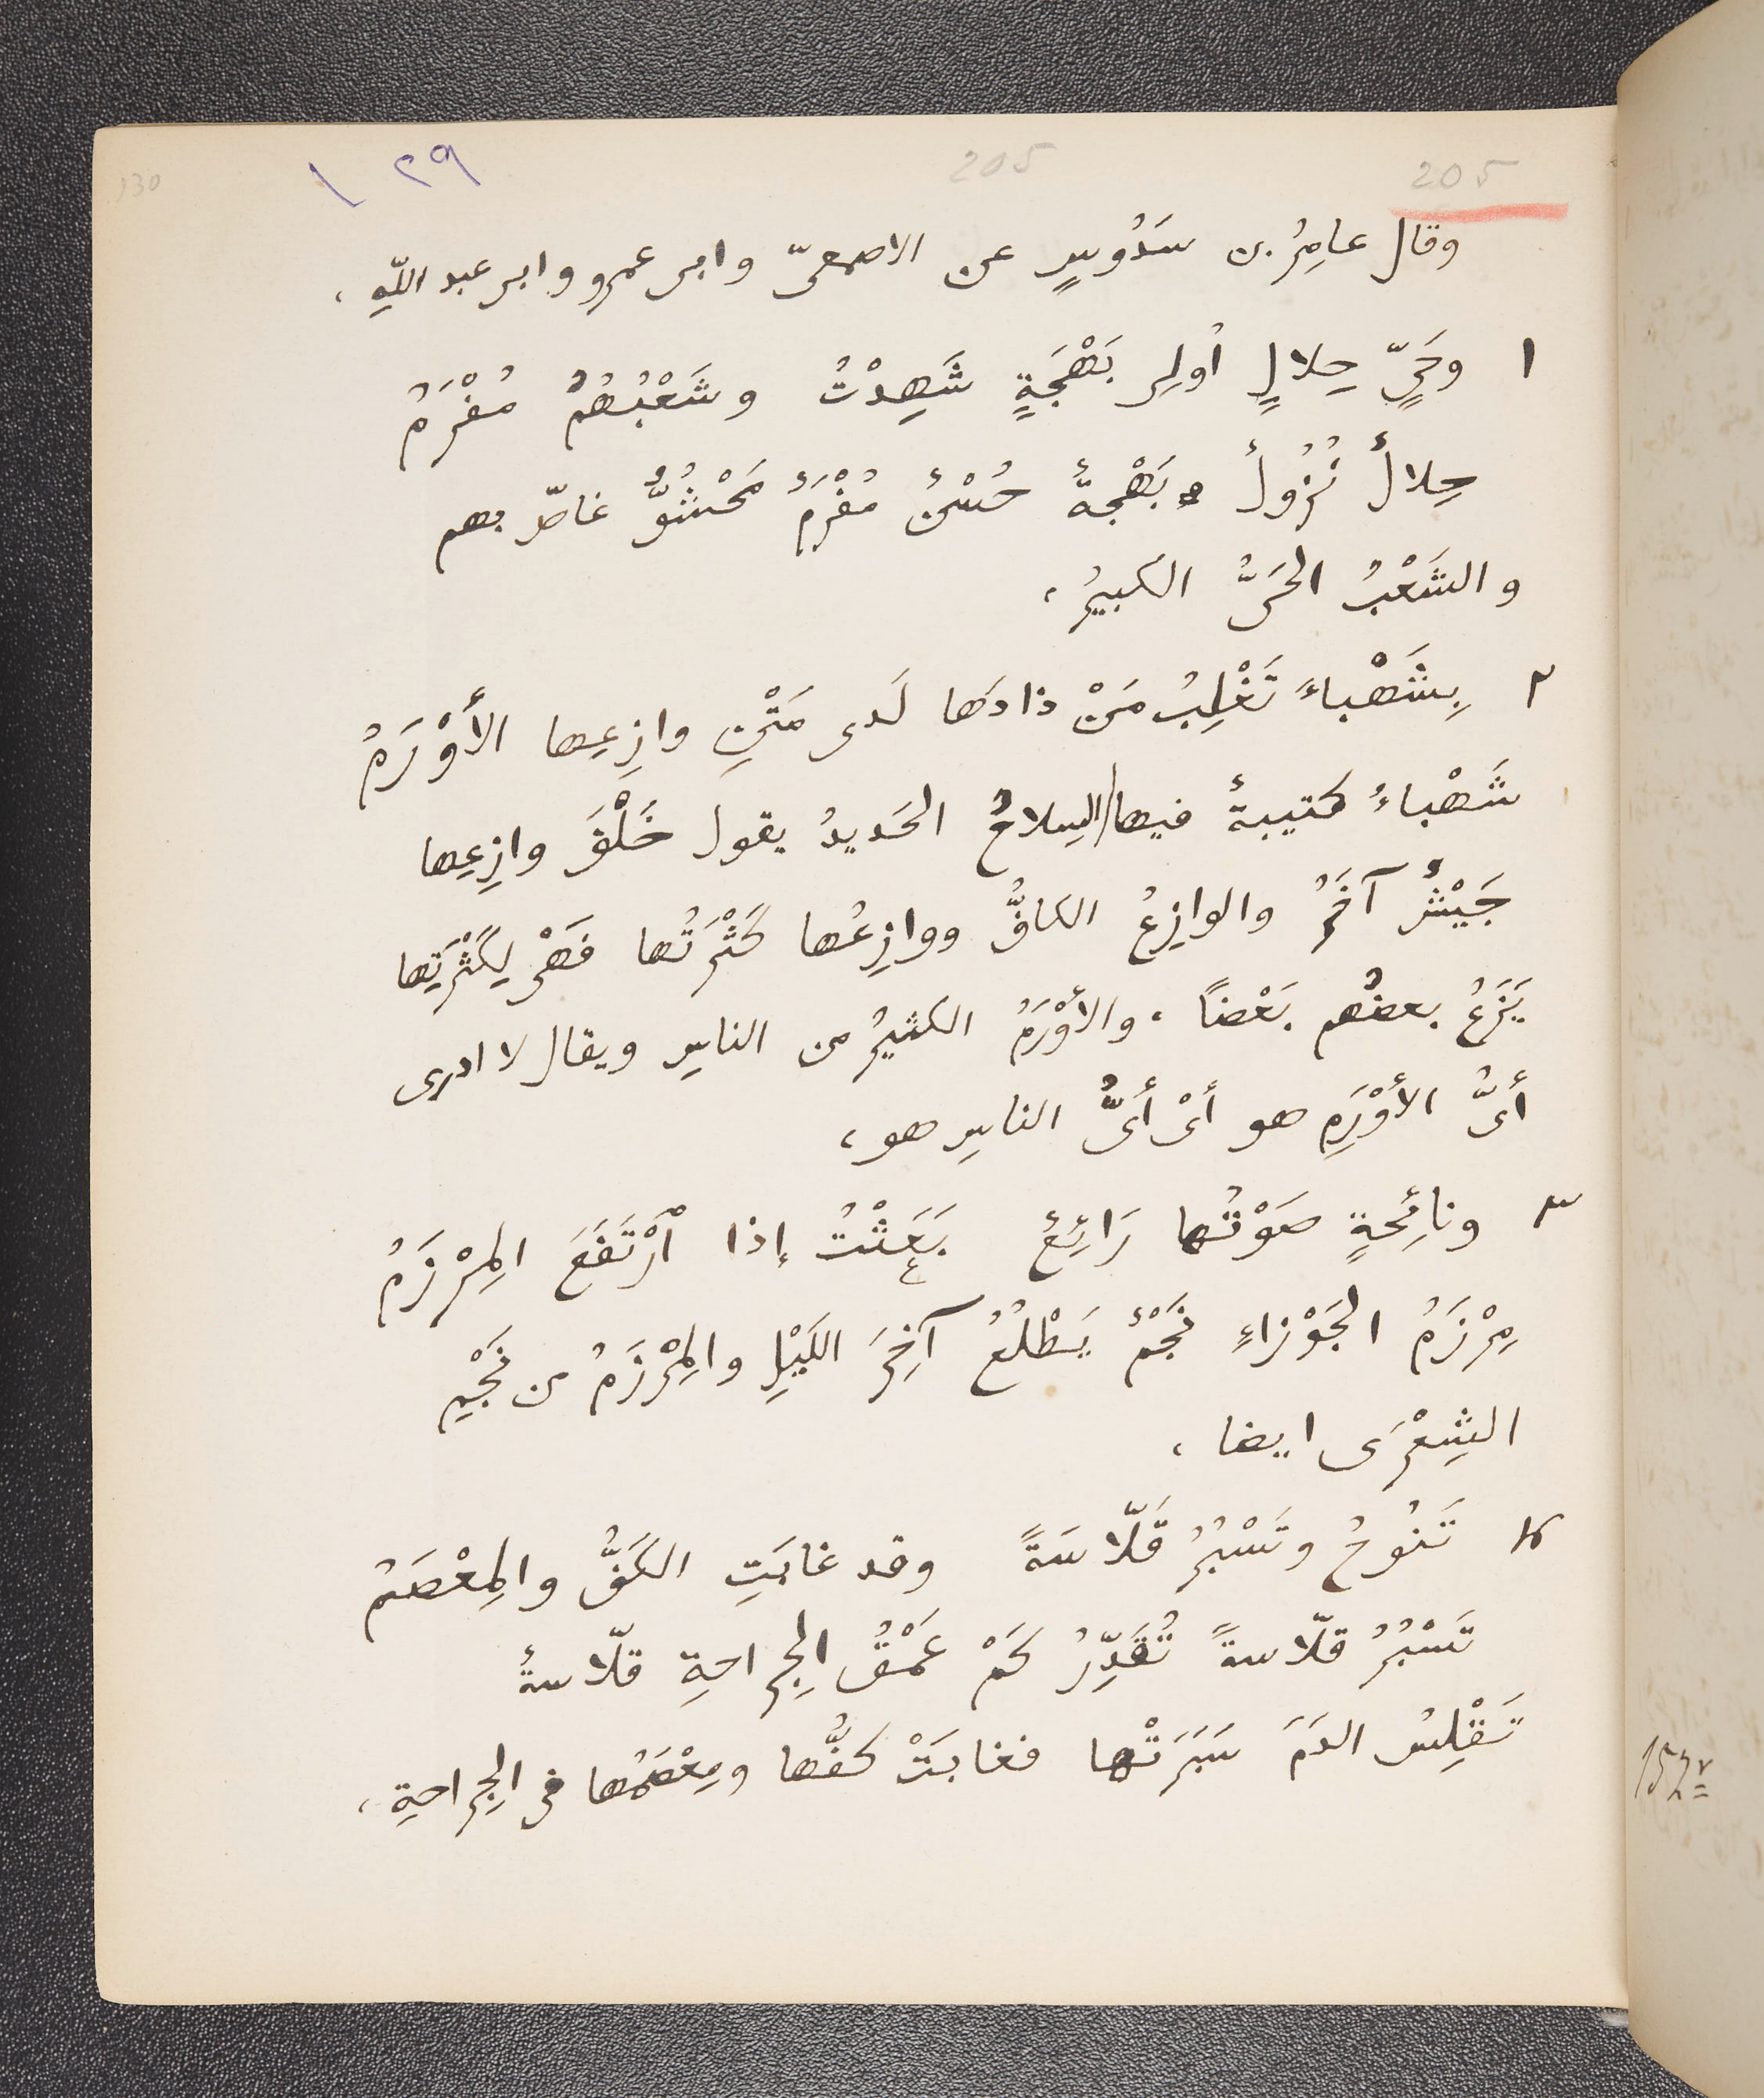 130 ١٢٩ 205 205
وقال عامِرُ بن سَدُوسٍ عن الاصمعىّ وابى عمرو وابى عبد اللّهِ ،
١ وحَىٍّ حِلالٍ أولِى بَهْجَةٍ شَهِدْتُ وشَعْبُهُمُ مُفْرَمُ
حِلالٌ نُزُولٌ بَهْجةٌ حُسْنٌ مُفْرَمٌ مَحْشُوٌّ غاصّ بهم
والشَعْبُ الحَىُّ الكبيرُ ،
٢ بِشَهْباءَ تَغْلِبُ مَنْ ذادَها لَدى مَتْنِ وازِعِها الأَوْرَمُ
شَهْباءُ كتيبةٌ فيها السِلاحُ الحَديدُ يقول خَلْفَ وازِعِها
جَيْشٌ آخَرُ والوازِعُ الكافُّ ووازِعُها كَثْرَتُها فَهْىَ لِكَثْرَتِها
يَزَعُ بعضُهم بَعْضًا ، والأَوْرَمُ الكثيرُ من الناسِ ويقال لا ادرى
أىُّ الأَوْرَمِ هو أىْ أىُّ الناسِ هو ،
٣ ونائِحةٍ صَوْتُها رَائِعٌ بَعَثْتُ إذا ٱرْتَفَعَ المِرْزَمُ
مِرْزَمُ الجَوْزاءِ نَجْمٌ يَطْلُعُ آخِرَ اللَيْلِ والمِرْزَمُ من نَجْمِ
الشِعْرَى ايضا ،
٤ تَنُوحُ وتَسْبُرُ قَلّاسَةً وقد غابَتِ الكَفُّ والمِعْصَمُ
تَسْبُرُ قلّاسةً تُقَدِّرُ كَمْ عُمْقُ الجِراحةِ قلّاسةٌ
تَقْلِسُ الدَمَ سَبَرَتْها فغابَتْ كفُّها ومِعْصَمُها فى الجِراحةِ ،